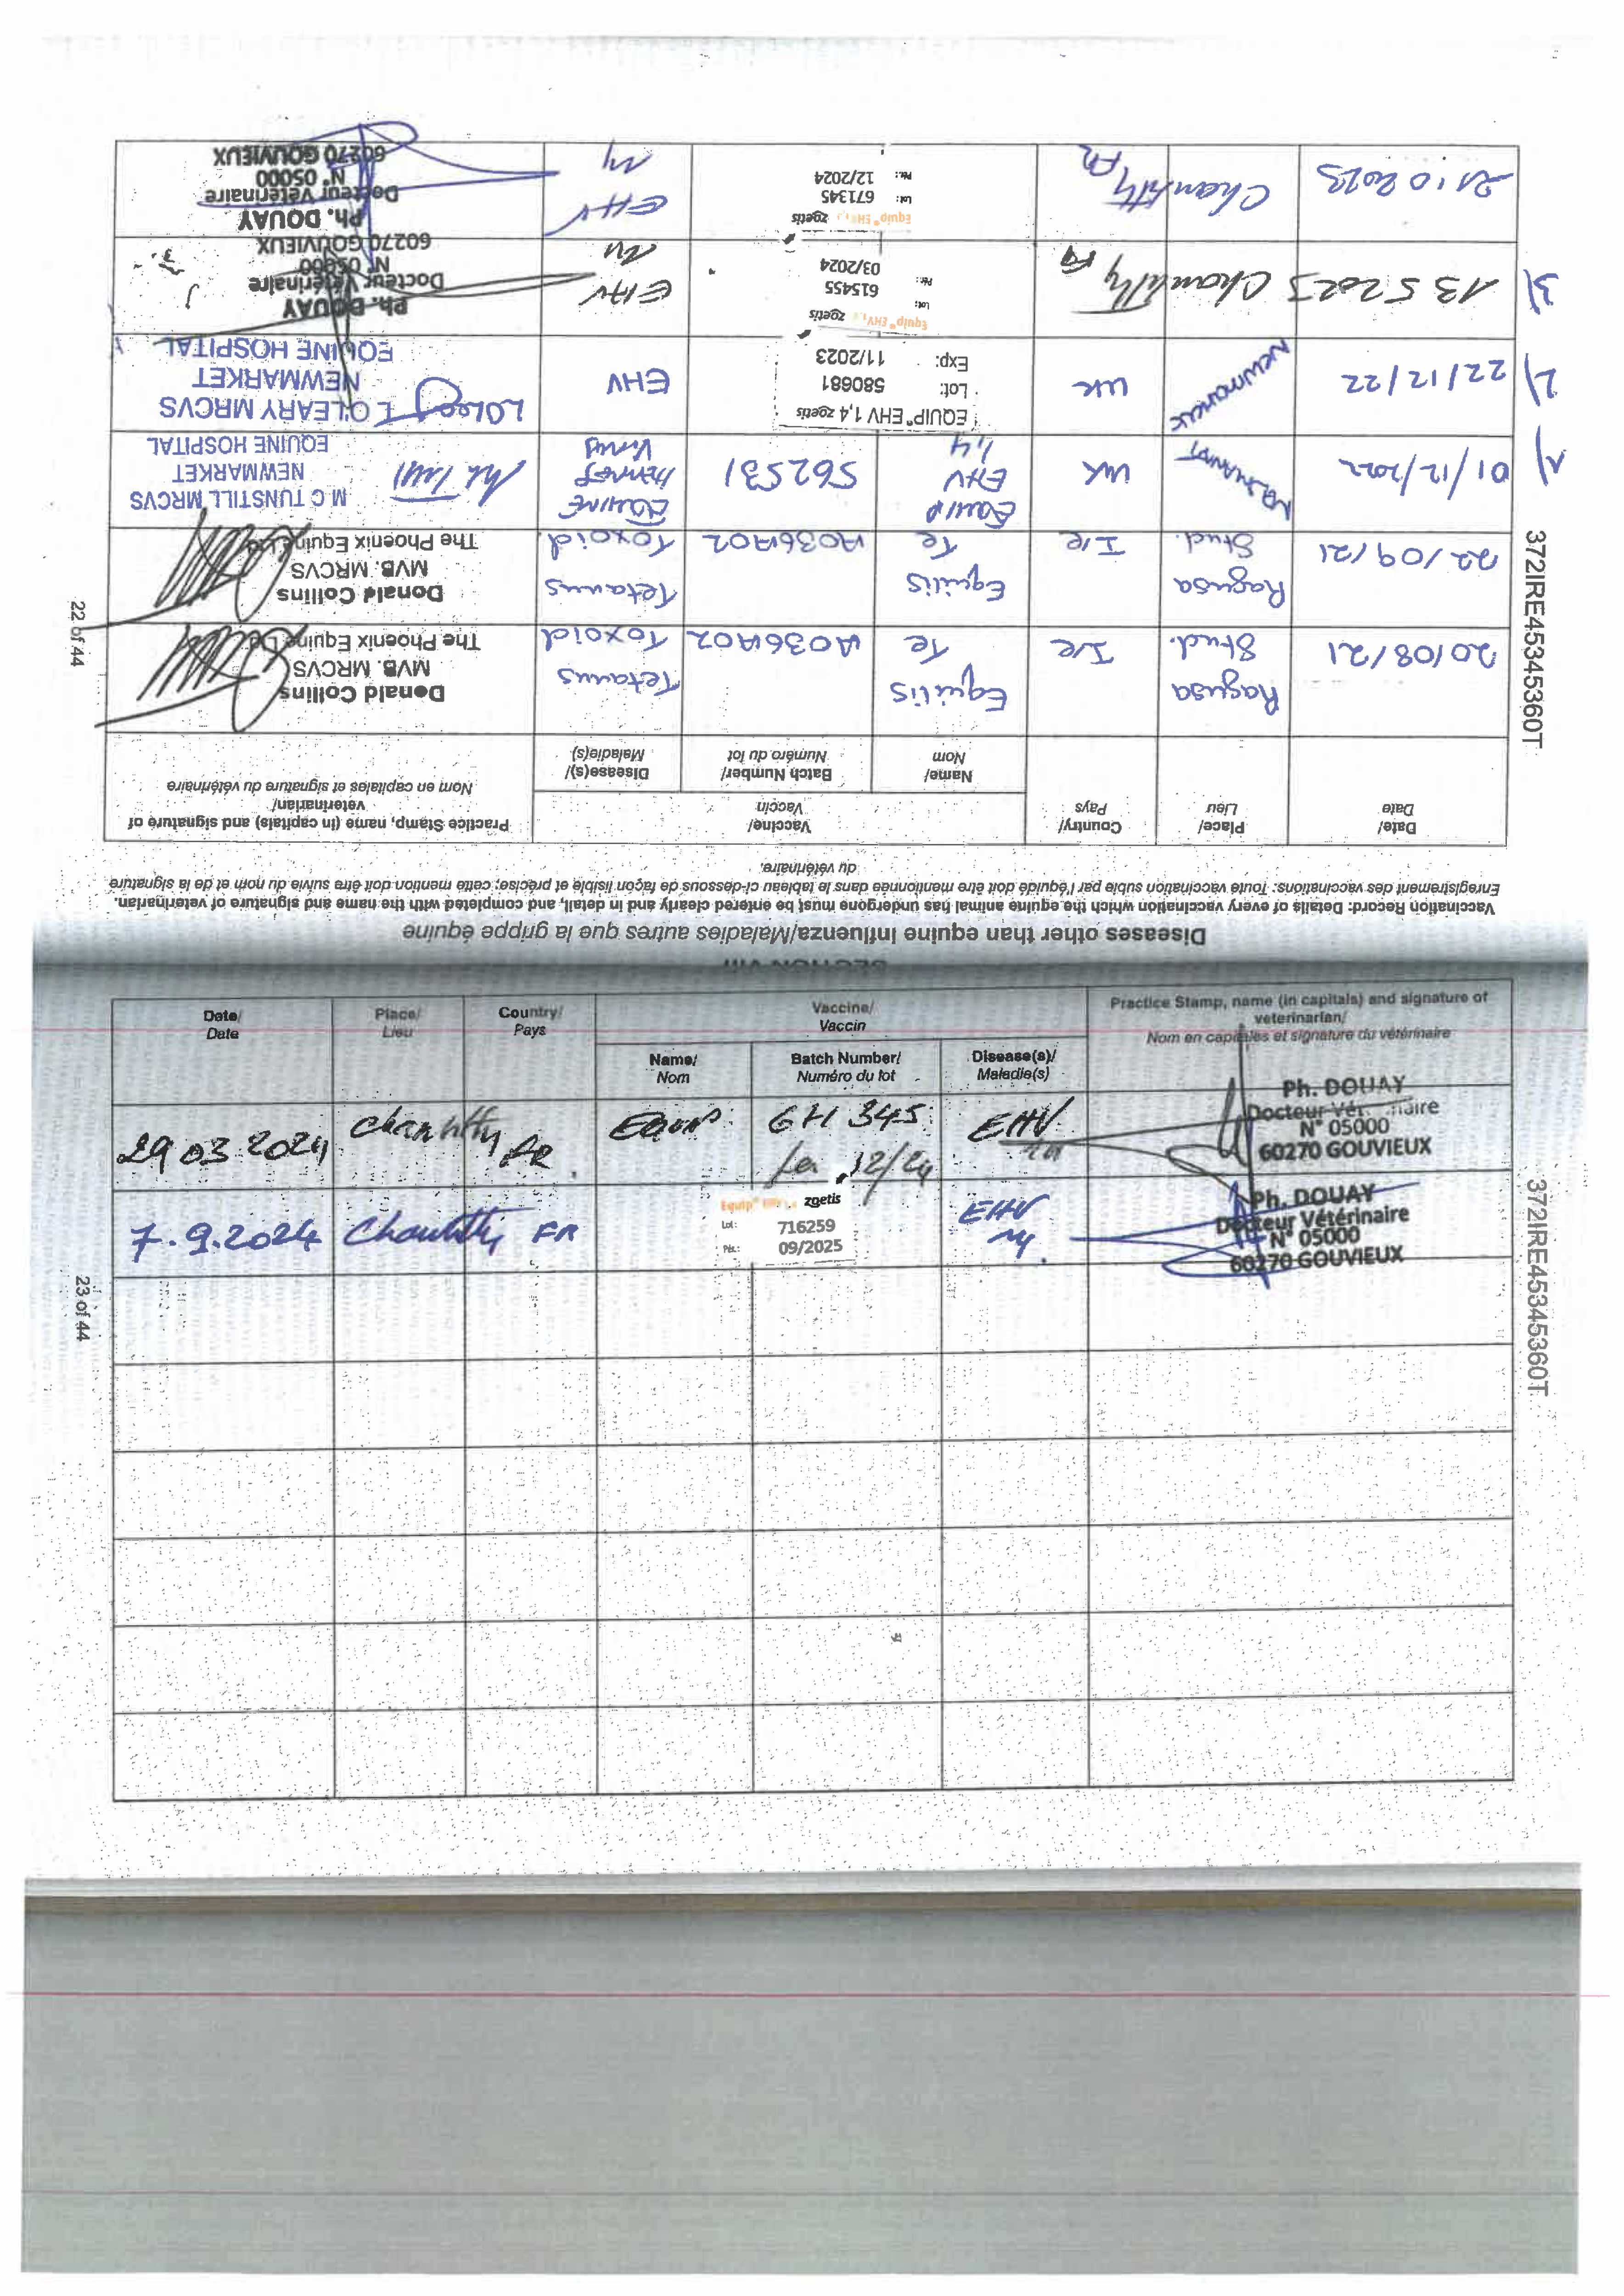 SECTION VIII
Diseases other than equine Influenza/Maladies autres que la grippe équine
Vaccination Record: Details of every vaccination which the equine animal has undergone must be entered clearly and in detail, and completed with the name and signature of veterinarian.
Enregistrement des vaccinations: Toute vaccination subie par l'équidé doit être mentionnée dans le tableau ci-dessous de façon lisible et précise; cette mention doit être suivie du nom et de la signature
du vétérinaire.
Date/ Date
Place/ Lieu
Country/ Pays
Vaccine/ Vaccin
Name/ Nom
Batch Number/ Numéro du lot
Disease(s)/ Maladie(s)
Practice Stamp, name (in capitals) and signature of
veterinarian/
Nom en capitales et signature du vétérinaire
20/08/21 Ragusa Stud. Ire Equilis Te A036A02 Tetanus Toxoid
Donald Collins
MVB. MRCVS
The Phoenix Equine
22/09/21 Ragusa Stud. Ire Equilis Te A036A02 Tetanus Toxoid
Donald Collins
MVB. MRCVS
The Phoenix Equine
1) 01/12/2022 UK Equip EHV 1,4 562531 Equine Herpes Virus
M C TUNSTILL MRCVS
NEWMARKET
EQUINE HOSPITAL
2) 22/12/22 Newmarket UK
EQUIP® EHV 1,4 zoetis
Lot: 580681
Exp: 11/2023
EHV
L O'LEARY MRCVS
NEWMARKET
EQUINE HOSPITAL
3) 13 5 2023 Chantilly FR
Equip® EHV zoetis
Lot: 615455
Pér.: 03/2024
EHV
Ph. DOUAY
Docteur Vétérinaire
N° 05000
60270 GOUVIEUX
21.10 2023 Chantilly FR
Equip® EHV zoetis
Lot: 671345
Pér.: 12/2024
EHV
Ph. DOUAY
Docteur Vétérinaire
N° 05000
60270 GOUVIEUX
372IRE45345360T
22 of 44
Date/ Date
Place/ Lieu
Country/ Pays
Vaccine/ Vaccin
Name/ Nom
Batch Number/ Numéro du lot
Disease(s)/ Maladie(s)
Practice Stamp, name (in capitals) and signature of
veterinarian/
Nom en capitales et signature du vétérinaire
29 03 2024 Chantilly FR Equip 671 345 12/24 EHV
Ph. DOUAY
Docteur Vétérinaire
N° 05000
60270 GOUVIEUX
7.9.2024 Chantilly FR
Equip® zoetis
Lot: 716259
Pér.: 09/2025
EHV
Ph. DOUAY
Docteur Vétérinaire
N° 05000
60270 GOUVIEUX
372IRE45345360T
23 of 44